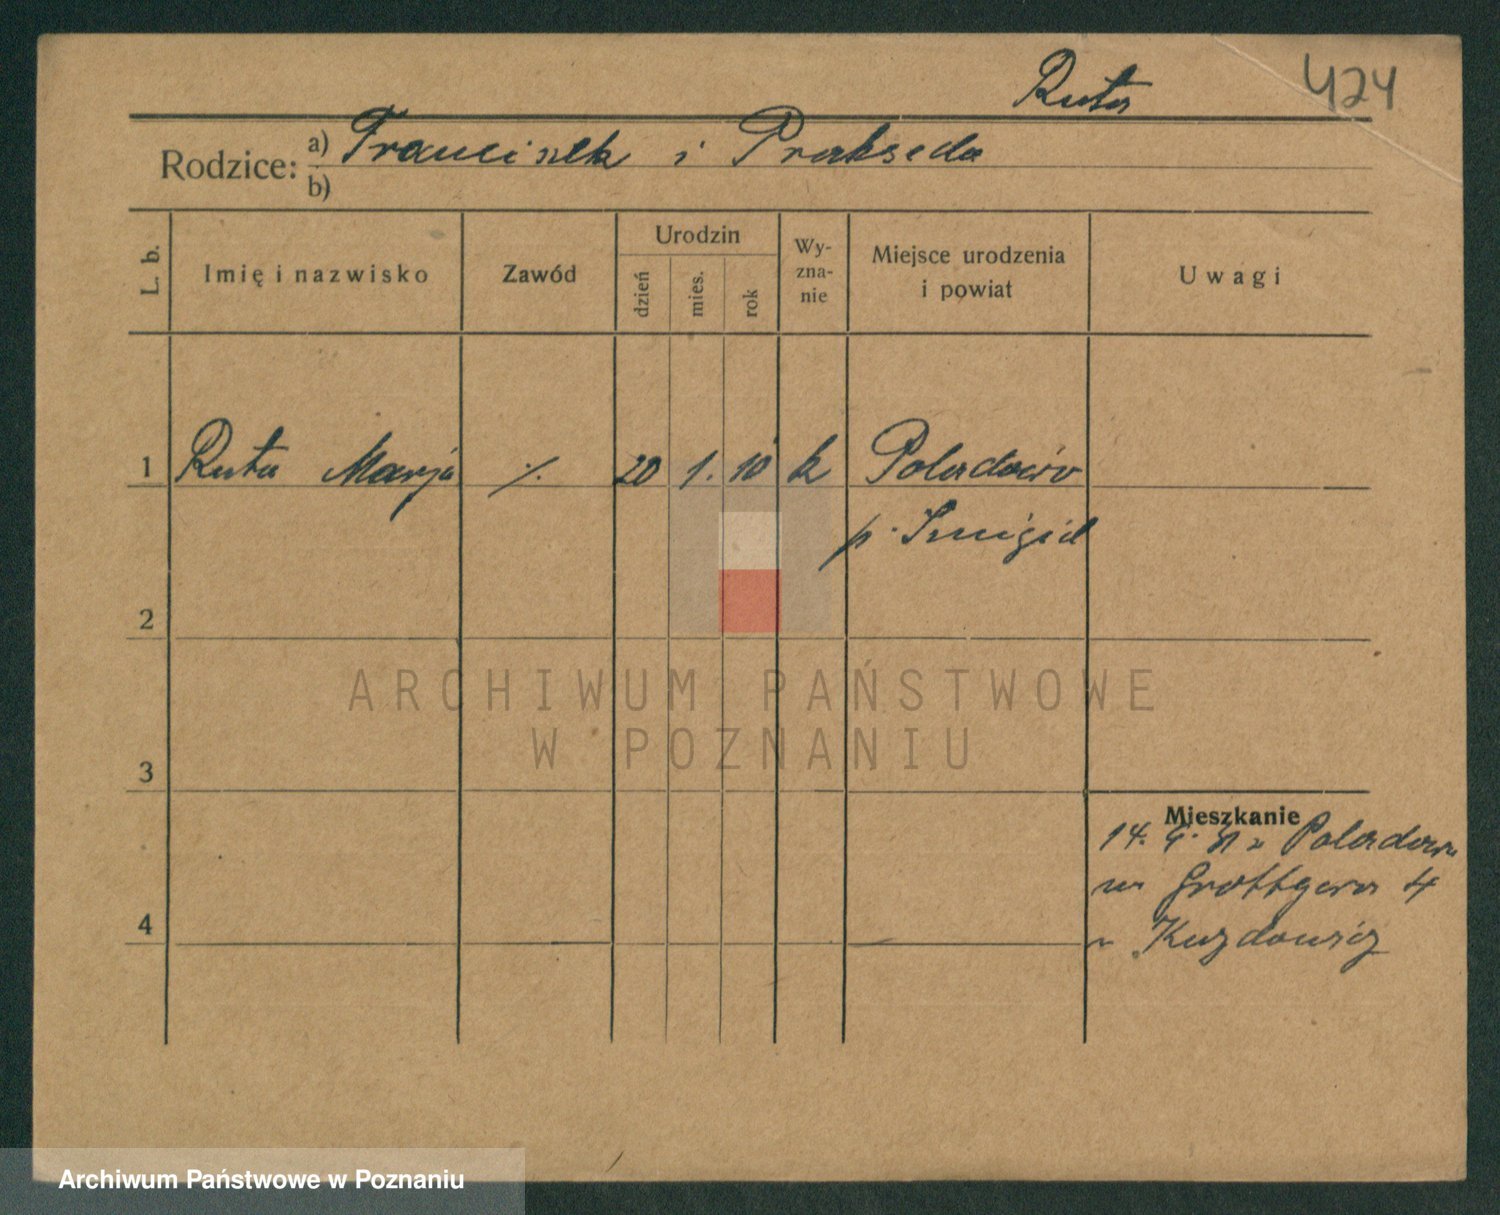 Ruta 424
Rodzice: a) Franciszek i Prakseda
b)
L. b. Imię i nazwisko Zawód Urodzin dzień mies. rok Wy-zna-nie Miejsce urodzenia i powiat Uwagi
1 Ruta Marja ·/. 20 1. 10 k Poladowo
p. Śmigiel
2
ARCHIWUM PAŃSTWOWE
W POZNANIU
3
Mieszkanie
14. 9. z Poladowa
na Grottgera 4
4
Archiwum Państwowe w Poznaniu